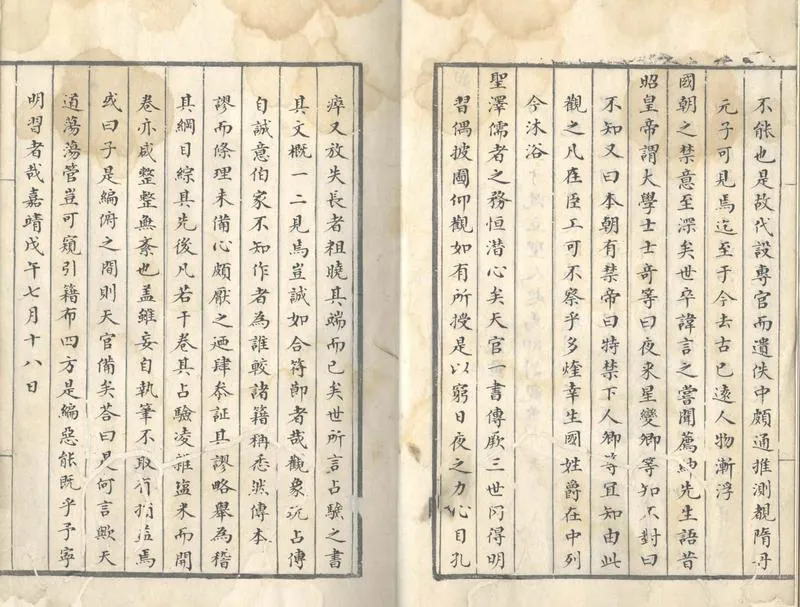 不能也是故代設專官而遺佚中頗通推測覩隋丹
元子可見焉迄至于今去古已遠人物漸浮
國朝之禁意至深矣世卒諱言之嘗聞薦紳先生語昔
昭皇帝謂大學士士奇等曰夜來星變卿等知不對曰
不知又曰本朝有禁帝曰特禁下人卿等宜知由此
觀之凡在臣工可不察乎多煃幸生國姓爵在中列
今沐浴
聖澤儒者之務恒潜心矣天官一書傳厥三世所得明
習偶披圖仰觀如有所授是以窮日夜之力心目孔
瘁又放失長者祖曉其端而已矣世所言占驗之書
其文概一二見焉豈誠如合符節者哉觀象玩占傳
自誠意伯家不知作者為誰較諸籍稱悉然傳本
謬而條理未備心頗厭之迺肆叅証其謬略舉為稽
其綱目綜其先後凡若干卷其占驗凌雜塩米而開
卷亦咸整整無紊也盖雖妄自執筆不取有損益焉
或曰子是編俯之間則天官備矣荅曰是何言歟天
道蕩蕩管豈可窺引籍布四方是編惡能既乎予寧
明習者哉嘉靖戊午七月十八日